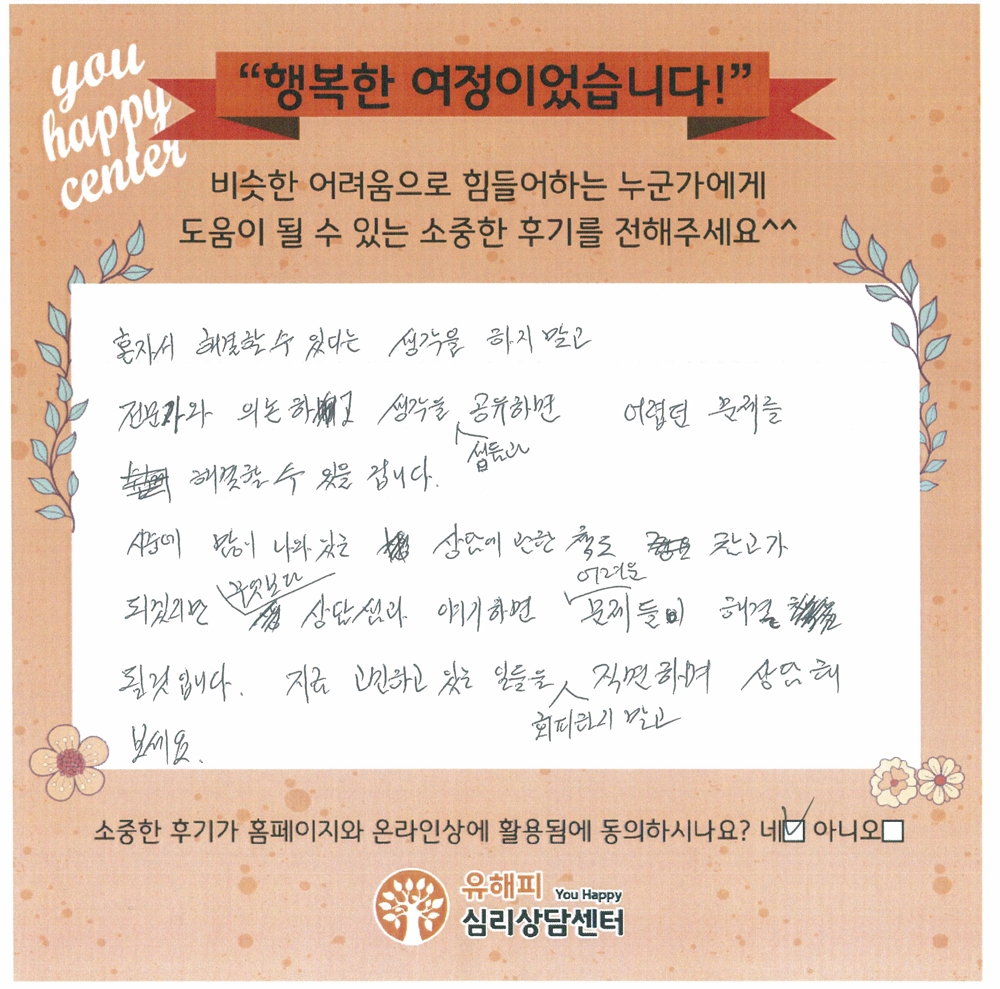 you
happy
center
“행복한 여정이었습니다!”
비슷한 어려움으로 힘들어하는 누군가에게
도움이 될 수 있는 소중한 후기를 전해주세요^^
혼자서 해결할 수 있다는 생각을 하지 말고
전문가와 의논하고 생각을 공유하면 어렵던 문제를
쌤들과
해결할 수 있을 겁니다.
시중에 많이 나와 있는 상담에 관한 책도 참고가
무엇보다 어려운
되겠지만 상담쌤과 얘기하면 문제들이 해결
될것 입니다. 지금 고민하고 있는 일들을 직면하며 상담 해
회피하지 말고
보세요.
소중한 후기가 홈페이지와 온라인상에 활용됨에 동의하시나요? 네 아니오
유해피 You Happy
심리상담센터